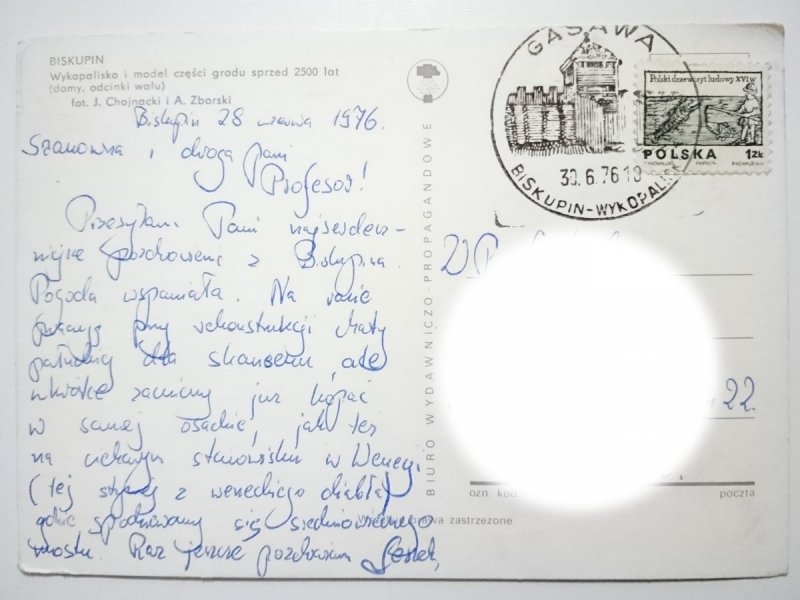 BISKUPIN
Wykopalisko i model części grodu sprzed 2500 lat
(domy, odcinki wału)
fot. J. Chojnacki i A. Zborski
Biskupin 28 czerwca 1976.
Szanowna i droga Pani
Profesor!
Przesyłam Pani najserdecz-
niejsze pozdrowienia z Biskupina.
Pogoda wspaniała. Na razie
pracuję przy rekonstrukcji chaty
dla skansenu, ale
wkrótce zaczniemy już kopać
w samej osadzie, jak też
na ciekawym stanowisku w Wenecji
(tej słynnej z weneckiego diabła)
gdzie spodziewamy się
mostu. Raz jeszcze pozdrawiam Leszek,
BIURO WYDAWNICZO-PROPAGANDOWE
GĄSAWA
30.6.76 18
BISKUPIN-WYKOPALISKA
Polski drzeworyt ludowy XVI w
POLSKA 1ZŁ
22
ozn. kod
poczta
prawa zastrzeżone